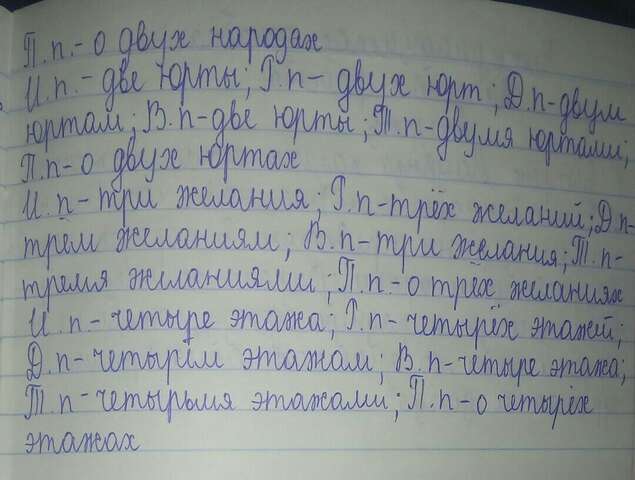 П.п.- о двух народах
И.п.- две юрты; Р.п- двух юрт; Д.п-двум
юртам; В.п-две юрты; Т.п-двумя юртами;
П.п-о двух юртах
И.п-три желания; Р.п-трёх желаний; Д.п-
трём желаниям; В.п-три желания; Т.п-
тремя желаниями; П.п.-о трёх желаниях
И.п-четыре этажа; Р.п-четырёх этажей;
Д.п-четырём этажам; В.п-четыре этажа;
Т.п-четырьмя этажами; П.п-о четырёх
этажах